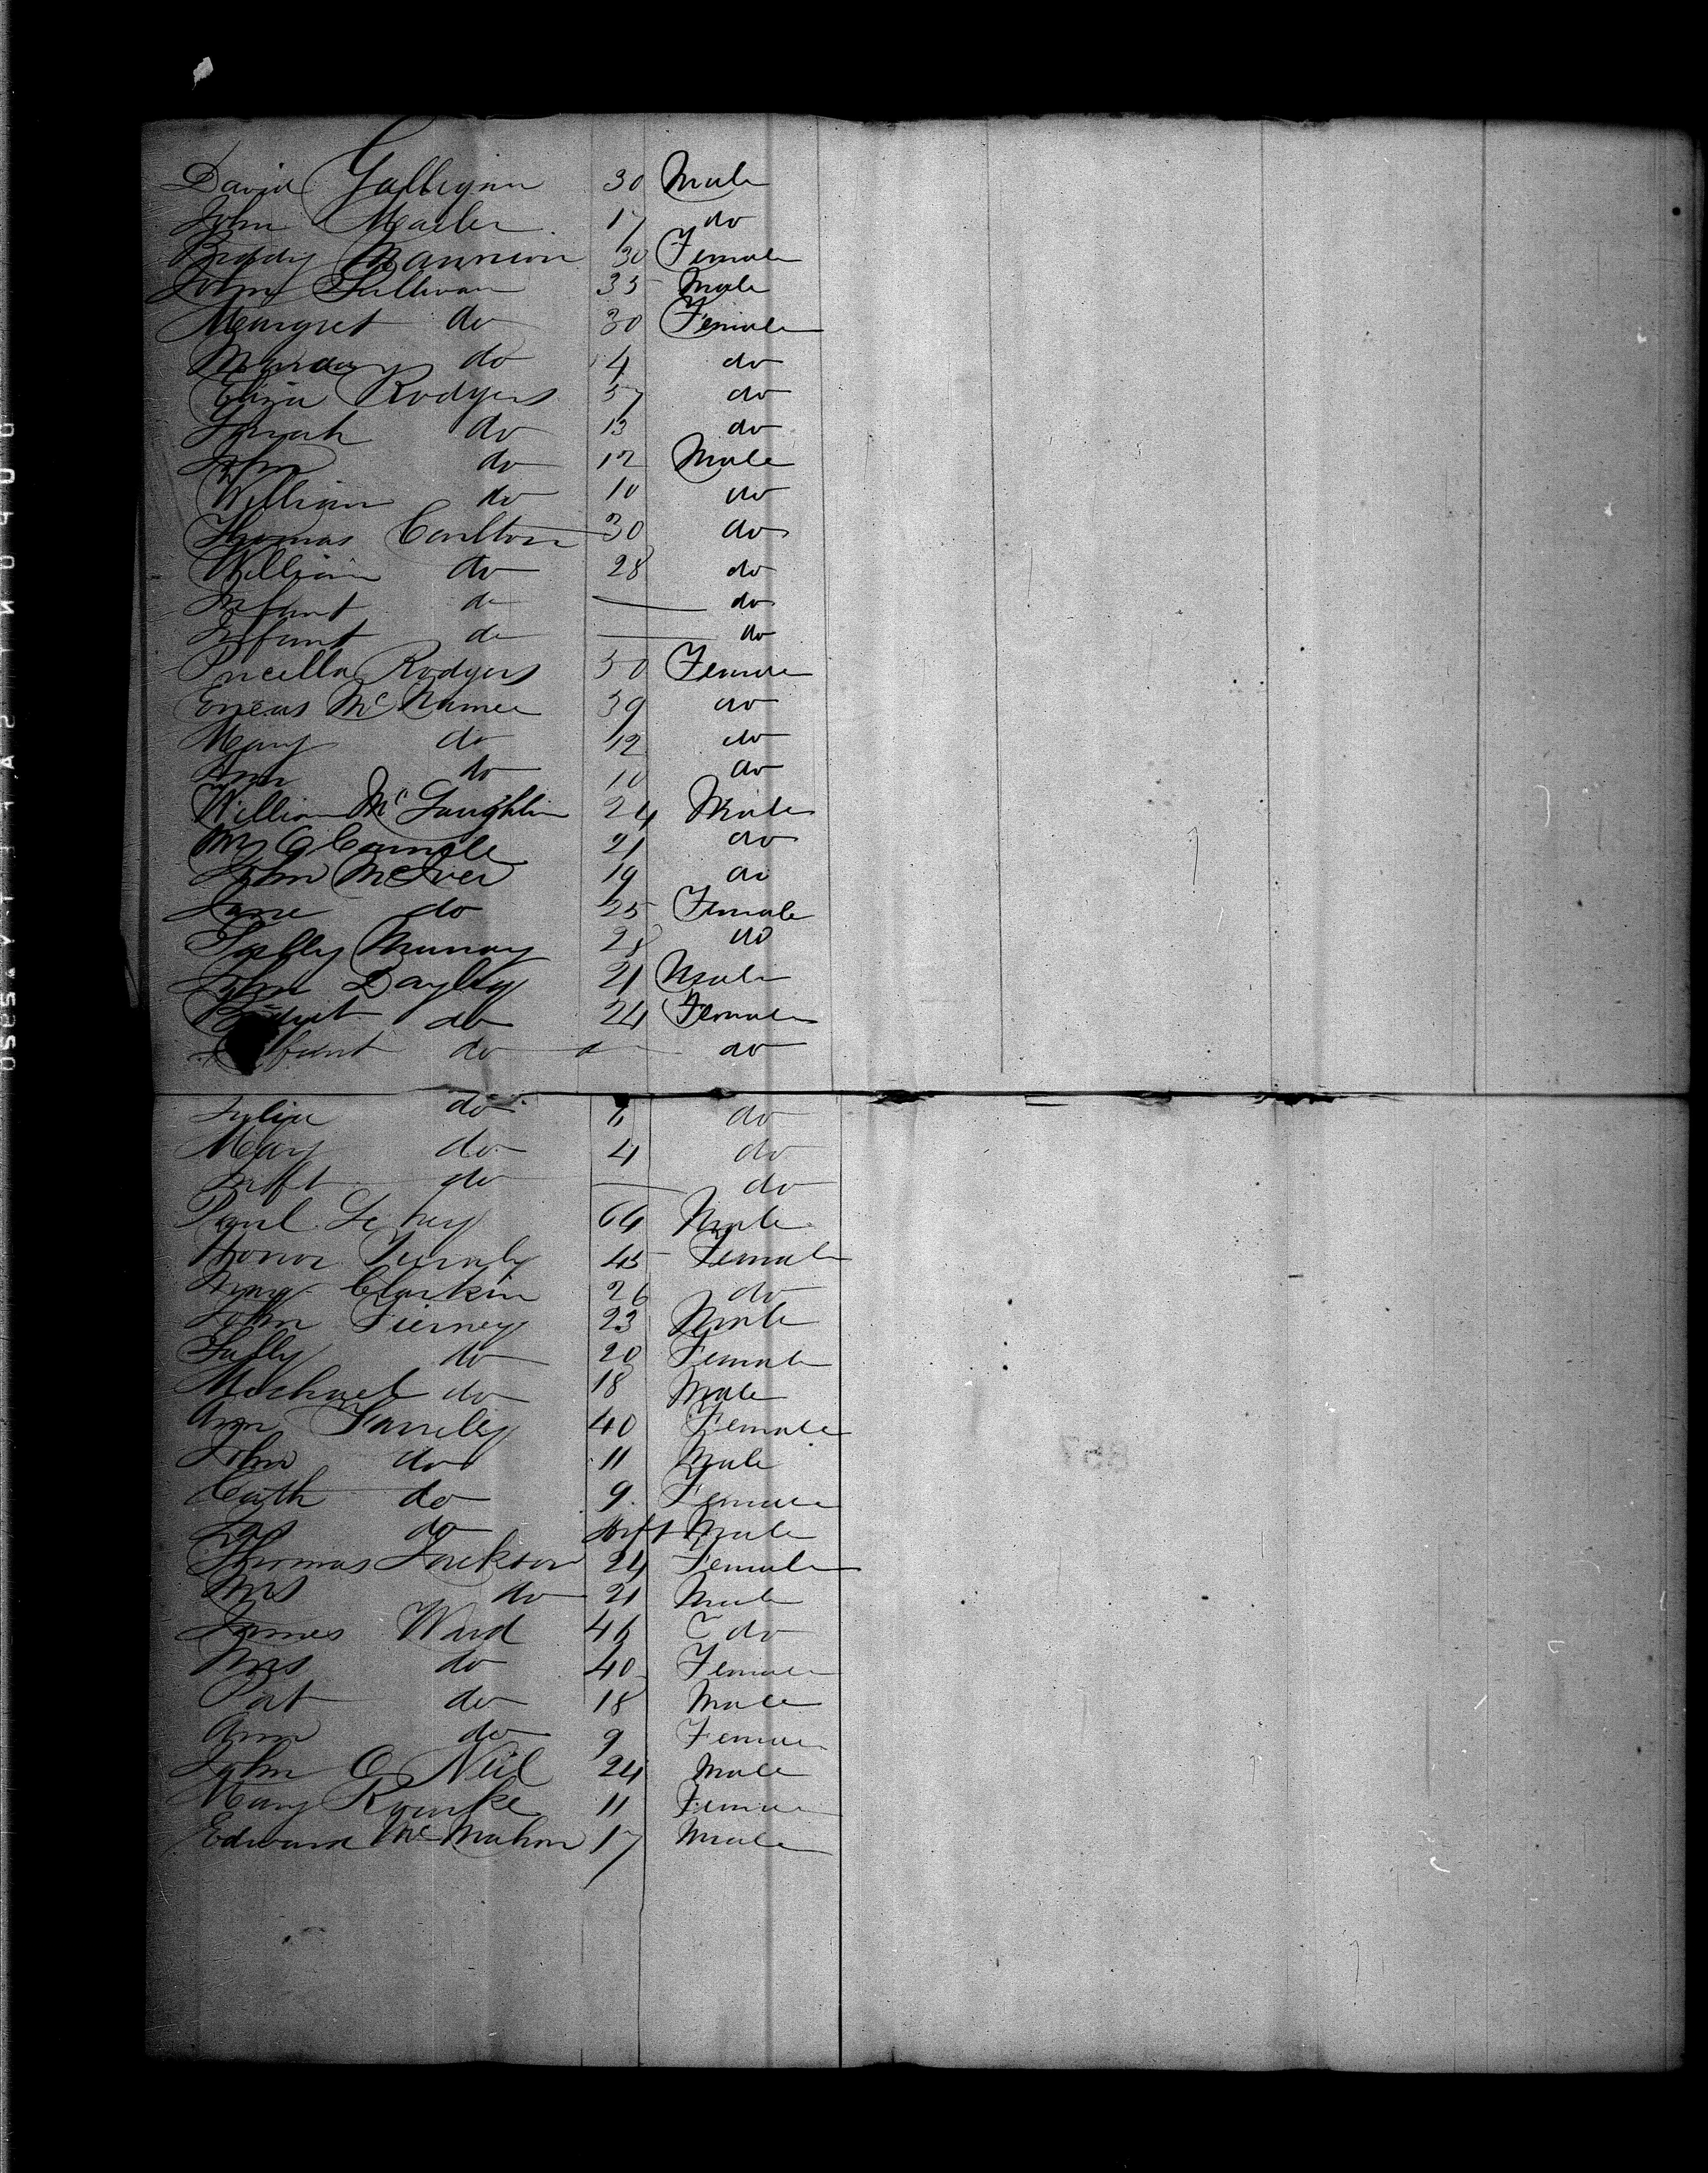 David Galligan 30 Male
John Marler 17 do
Biddy Mannion 30 Female
John Sullivan 35 Male
Margret do 30 Female
do 4 do
Eliza Rodgers 37 do
Sarah do 13 do
John do 12 Male
William do 10 do
Thomas Carlton 30 do
William do 28 do
Infant do — do
Infant do — do
Pricella Rodgers 50 Female
Eneas McNamee 39 do
Mary do 12 do
Ann do 10 do
William McLaughlin 24 Male
21 do
John McIver 19 do
Jane do 25 Female
Sally Murray 28 do
John Bayley 21 Male
do 24 Female
Infant do do
Julia do 6 do
Mary do 4 do
Inft do — do
Paul 64 Male
Honor 45 Female
Clarkin 26 do
John Tierney 23 Male
Sally do 20 Female
Michael do 18 Male
Ann Farreley 40 Female
John do 11 Male
Cath do 9 Female
Jas do Inft Male
Thomas Jackson 24 Female
Mrs do 21 Male
James Ward 46 do
Mrs do 40 Female
Pat do 18 Male
Ann do 9 Female
John O Neil 24 Male
Mary Rourke 11 Female
Edward McMahon 17 Male